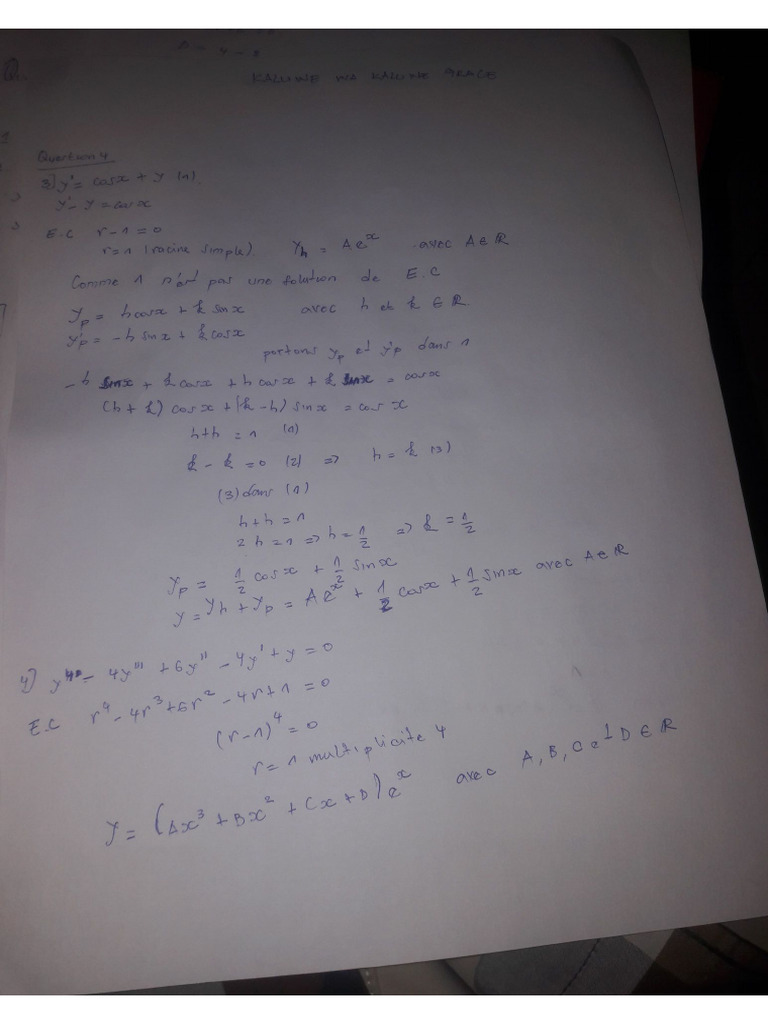 Question 4
3) y' = cos x + y (1).
y' - y = cos x
E.C r - 1 = 0
r = 1 (racine simple). y_h = A e^x avec A ∈ ℝ
Comme 1 n'est pas une solution de E.C
y_p = h cos x + k sin x avec h et k ∈ ℝ
y'_p = - h sin x + k cos x
portons y_p et y'_p dans 1
- h sin x + k cos x + h cos x + k sin x = cos x
(h + k) cos x + (k - h) sin x = cos x
h + h = 1 (1)
k - k = 0 (2) => h = k (3)
(3) dans (1)
h + h = 1
2h = 1 => h = 1/2 => k = 1/2
y_p = 1/2 cos x + 1/2 sin x
y = y_h + y_p = A e^x + 1/2 cos x + 1/2 sin x avec A ∈ ℝ
4) y'''' - 4y''' + 6y'' - 4y' + y = 0
E.C r^4 - 4r^3 + 6r^2 - 4r + 1 = 0
(r - 1)^4 = 0
r = 1 multiplicite 4
y = (Ax^3 + Bx^2 + Cx + D) e^x avec A, B, C et D ∈ ℝ